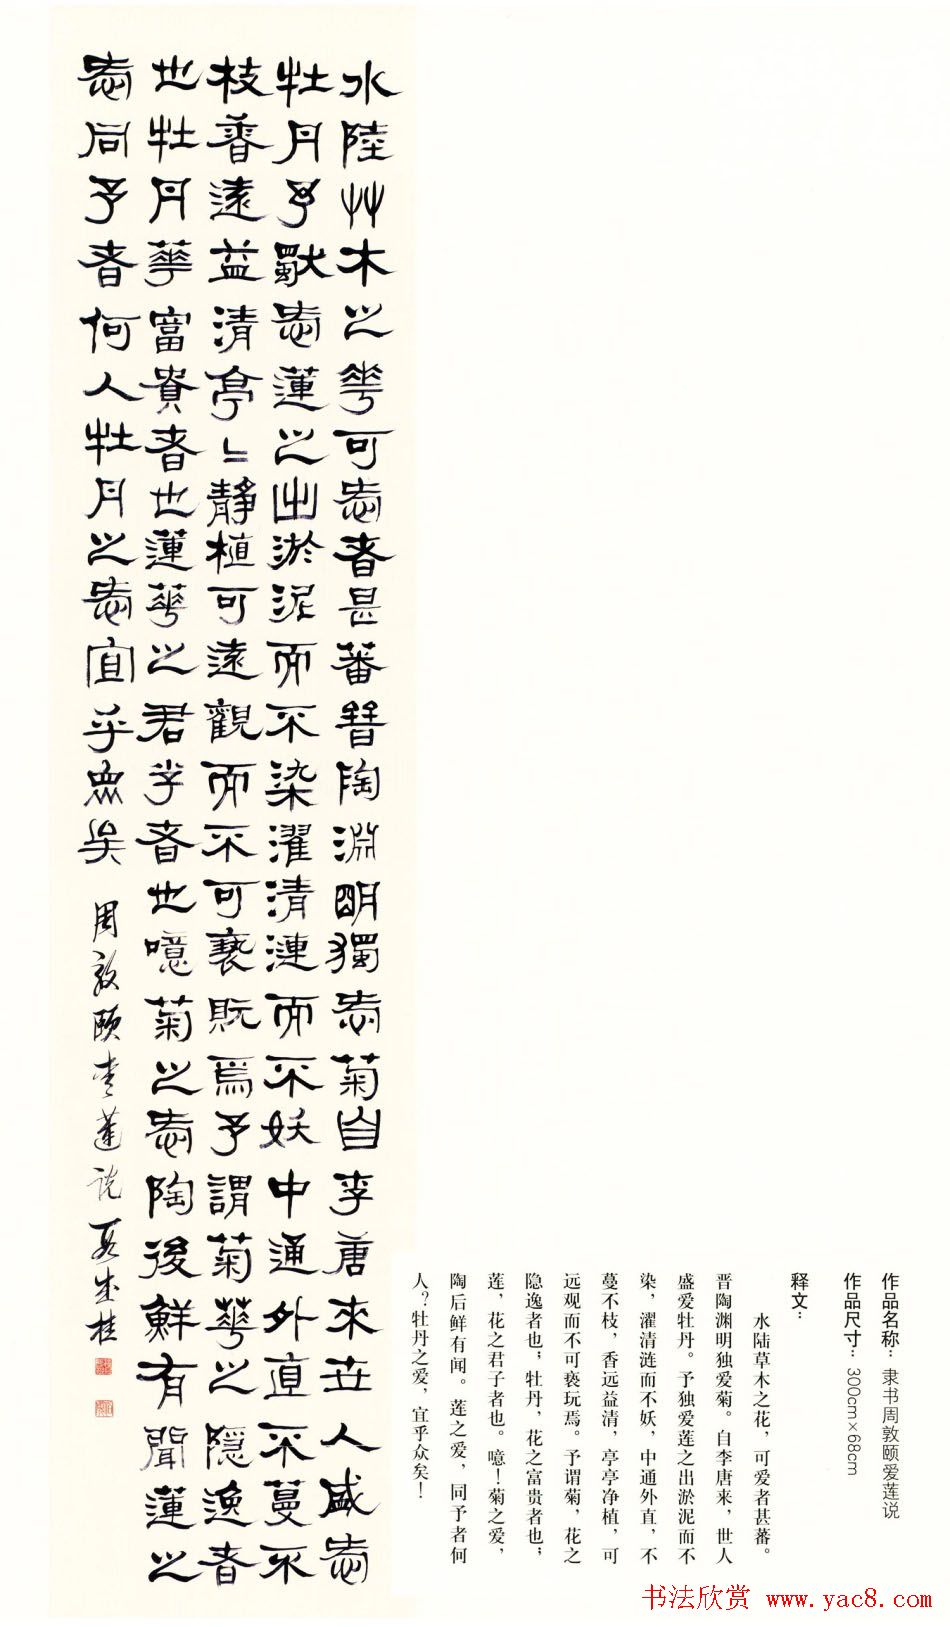 水陸艸木之花可愛者甚蕃晉陶淵明獨愛菊自李唐來世人盛愛
牡丹予獨愛蓮之出淤泥而不染濯清漣而不妖中通外直不蔓不
枝香遠益清亭〻靜植可遠觀而不可褻貦焉予謂菊華之隱逸者
也牡丹華富貴者也蓮華之君子者也噫菊之愛陶後鮮有聞蓮之
愛同予者何人牡丹之愛宜乎衆矣 周敦頤愛蓮說
作品名称：隶书周敦颐爱莲说
作品尺寸：300cm×68cm
释文：
水陆草木之花，可爱者甚蕃。
晋陶渊明独爱菊。自李唐来，世人
盛爱牡丹。予独爱莲之出淤泥而不
染，濯清涟而不妖，中通外直，不
蔓不枝，香远益清，亭亭净植，可
远观而不可亵玩焉。予谓菊，花之
隐逸者也；牡丹，花之富贵者也；
莲，花之君子者也。噫！菊之爱，
陶后鲜有闻。莲之爱，同予者何
人？牡丹之爱，宜乎众矣！
书法欣赏 www.yac8.com